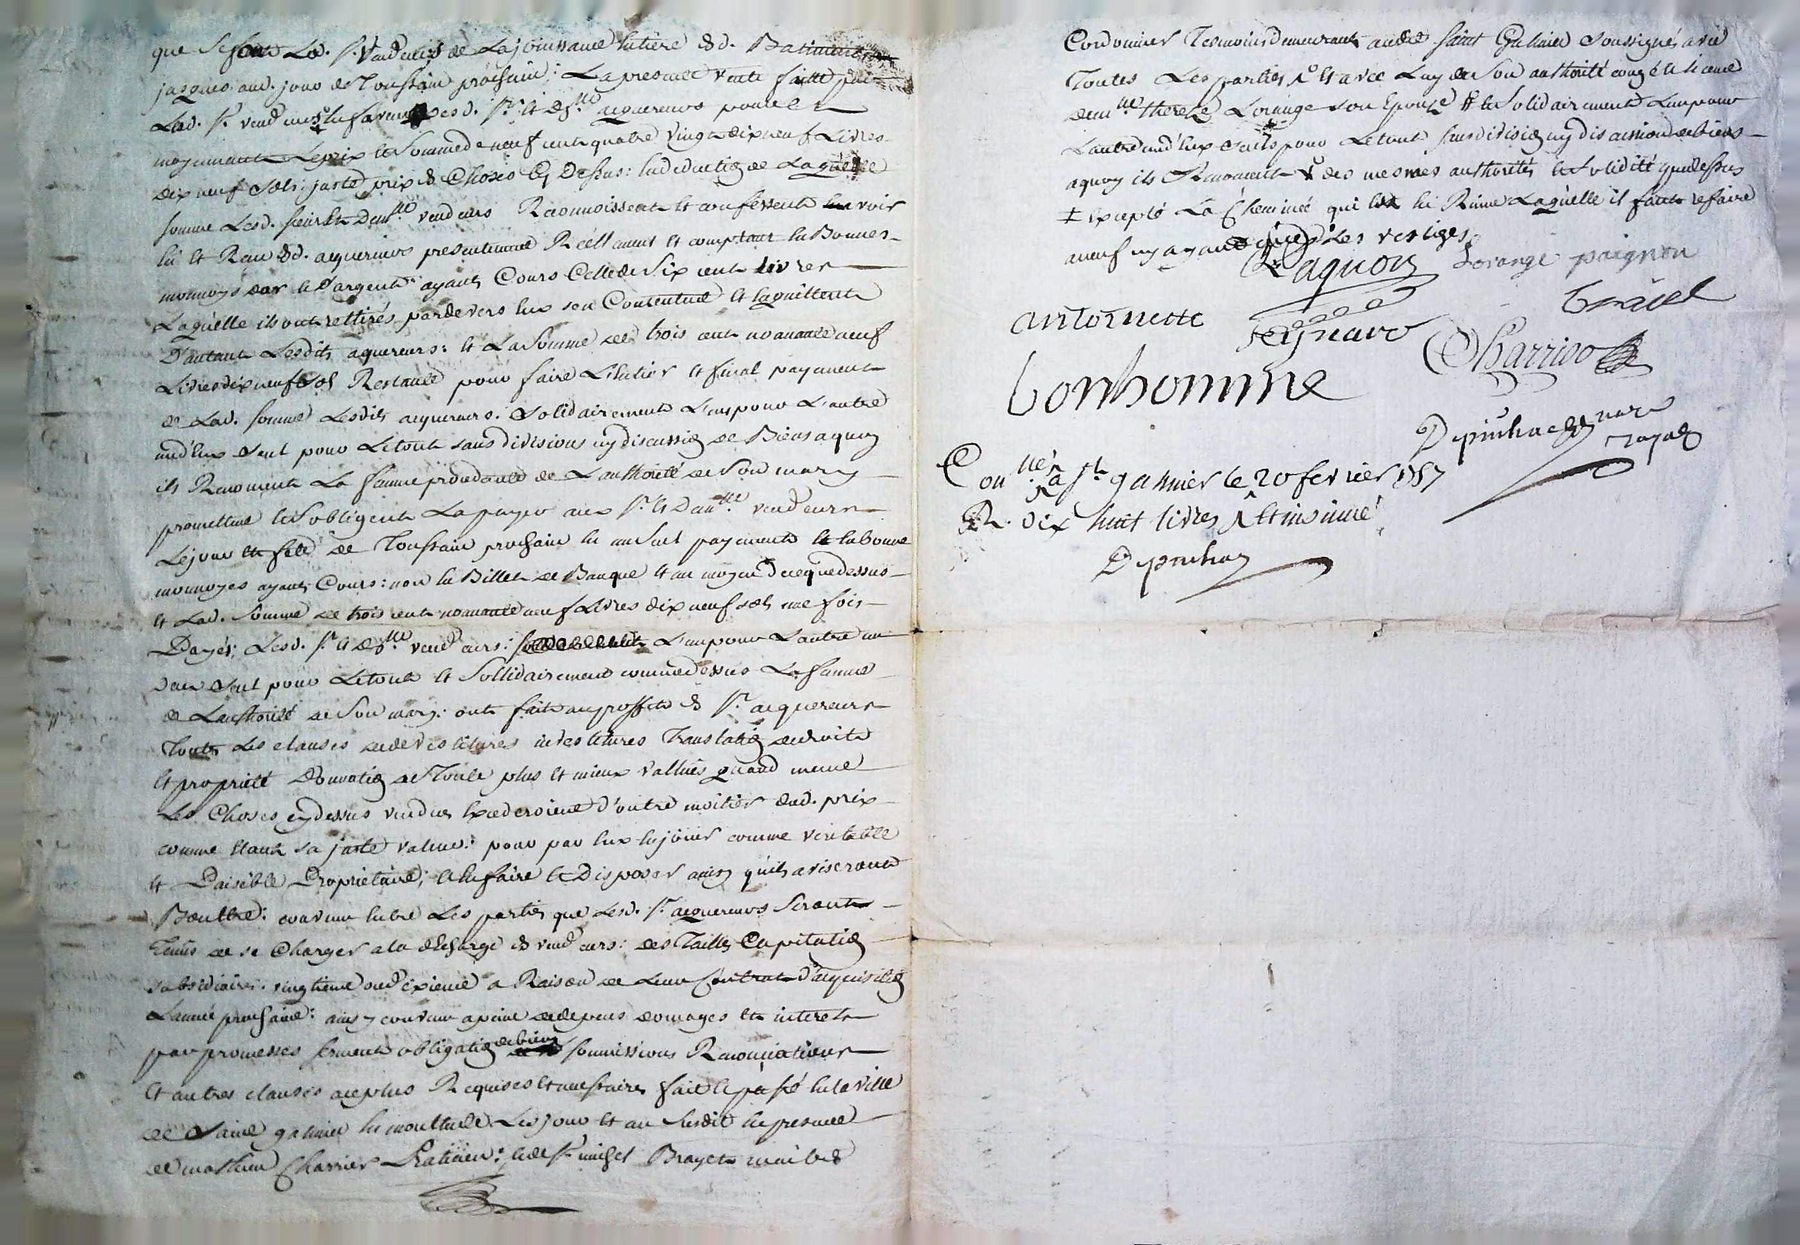 que se sont led. Sr. vendeurs de la joüissance entiere d. Batiments
jusques aud. jour de Toussain prochain: La presente vente faitte par
Led. Sr. vendeurs en faveur desd. Sr. et dlle acquereurs pour et
moyennant Le prix et Somme de neuf cent quatre vingt dix neuf Livres
dix neuf sols: juste prix d. choses cy Dessus: en deduction de Laquelle
somme Lesd. sieur et Damlle vendeurs Reconnoissent et confessent avoir
eü et Receu d. acquereurs presentement Réellement et comptant en Bonnes
monnoyes d'or et d'argent: ayant Cours Celle de six cent livres
Laquelle ils ont rettirés pardevers eux s'en Contentent et En quittent
D'autant Lesdits aquereurs: et La Somme de trois cent nonante neuf
Livres dix neuf sols Restante pour faire L'entier et final payement
de Lad. somme Lesdits acquereurs: Solidairement L'un pour L'autre
un d'eux Seul pour Le tout sans divisions ny discussion de Biens a quoy
ils Renoncent La femme procedante de L'authorité de Son mary
promettent et S'obligent La payer aux Sr. et Damlle. vendeurs
Le jour et fête de Toussain prochain en un Seul payement et en bonne
monnoyes ayant Cours: non en Billet de Banque et au moyen de ce que dessus
et Lad. Somme de trois cent nonante neuf Livres dix neuf sols une fois
Payés; Lesd. Sr. et dlle vendeurs: L'un pour L'autre un
d'eux Seul pour Le tout et Sollidairement comme dessus La femme
de L'authorité de Son mary: ont fait au proffit d. Sr. acquereurs
Toutes Les clauses de devestitures investitures Translation de droits
et propriété donnation de Toute plus et mieux vallüe quand meme
Les Choses cy dessus vendues Excederoient d'outre moitier dud. prix
comme étant sa juste valeur: pour par eux en joüir comme veritable
et Paisible Proprietaire; et en faire et Disposer ainsy qu'ils aviseront
Bon Etre: convenu entre Les parties que Lesd. Sr. acquereurs Seront
Tenus de se Charger a la décharge d. vendeurs: des Tailles Capitation
subsidiaires: vingtieme ou dixieme a Raison de Leur Contrat d'acquisition
L'année prochaine: ainsy convenu a peine de depens domages et interets
par promesses serment obligation de biens soumissions Renonciations
et autres clauses au plus Requises et necessaires fait et passé en la ville
de Saint galmier en l'etude Les jour et an Susdit en presence
de mathieu Charrier Praticien: et de Sr. michel Brayet maitre
Cordonnier Temoins demeurant aud. Saint Galmier Soussignés avec
Toutes Les parties
demlle. therese Lorange son Epouze et Solidairement L'un pour
L'autre un d'eux seul pour Le tout sans division ny discussion de biens
a quoy ils Renoncent des mesmes authorité et Solidité que dessus
‡ excepté La Cheminée qui est en Ruine Laquelle il faut refaire
a neuf n'y ayant que Les vestiges
Pagnon Lorange paignon
antoinette Reynaud brayet
bonhomme Charrier
Depinhac Notaire royal
Conllé. a St. galmier le 20 fevrier 1757
R. dix huit livres et insinué
Depinhac